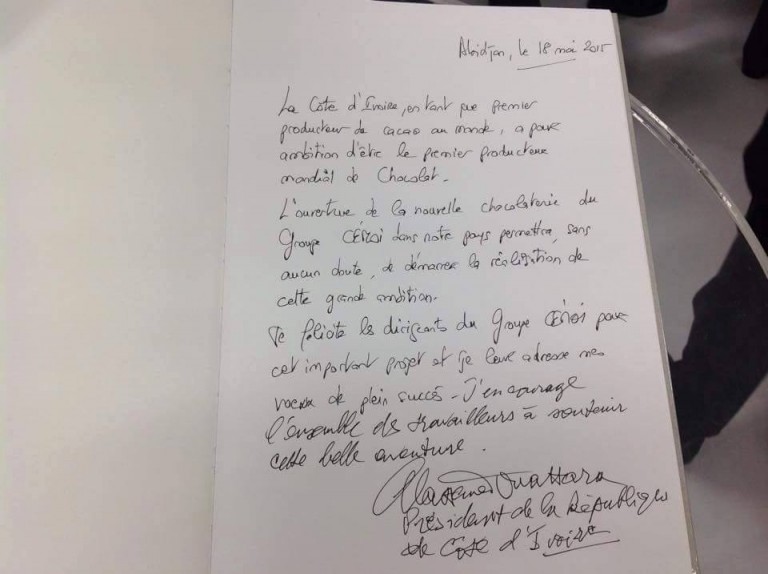 Abidjan, le 18 mai 2015
La Côte d'Ivoire, en tant que premier
producteur de cacao au monde, a pour
ambition d'être le premier producteur
mondial de Chocolat.
L'ouverture de la nouvelle chocolaterie du
Groupe CÉMOI dans notre pays permettra, sans
aucun doute, de démarrer la réalisation de
cette grande ambition.
Je félicite les dirigeants du Groupe CÉMOI pour
cet important projet et je leur adresse mes
voeux de plein succès - J'encourage
l'ensemble des travailleurs à soutenir
cette belle aventure.
Alassane Ouattara
Président de la République
de Côte d'Ivoire